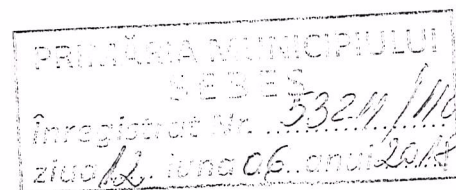 PRIMĂRIA MUNICIPIULUI
SEBEȘ
Înregistrat Nr.
ziua 12 luna 06 anul 2018